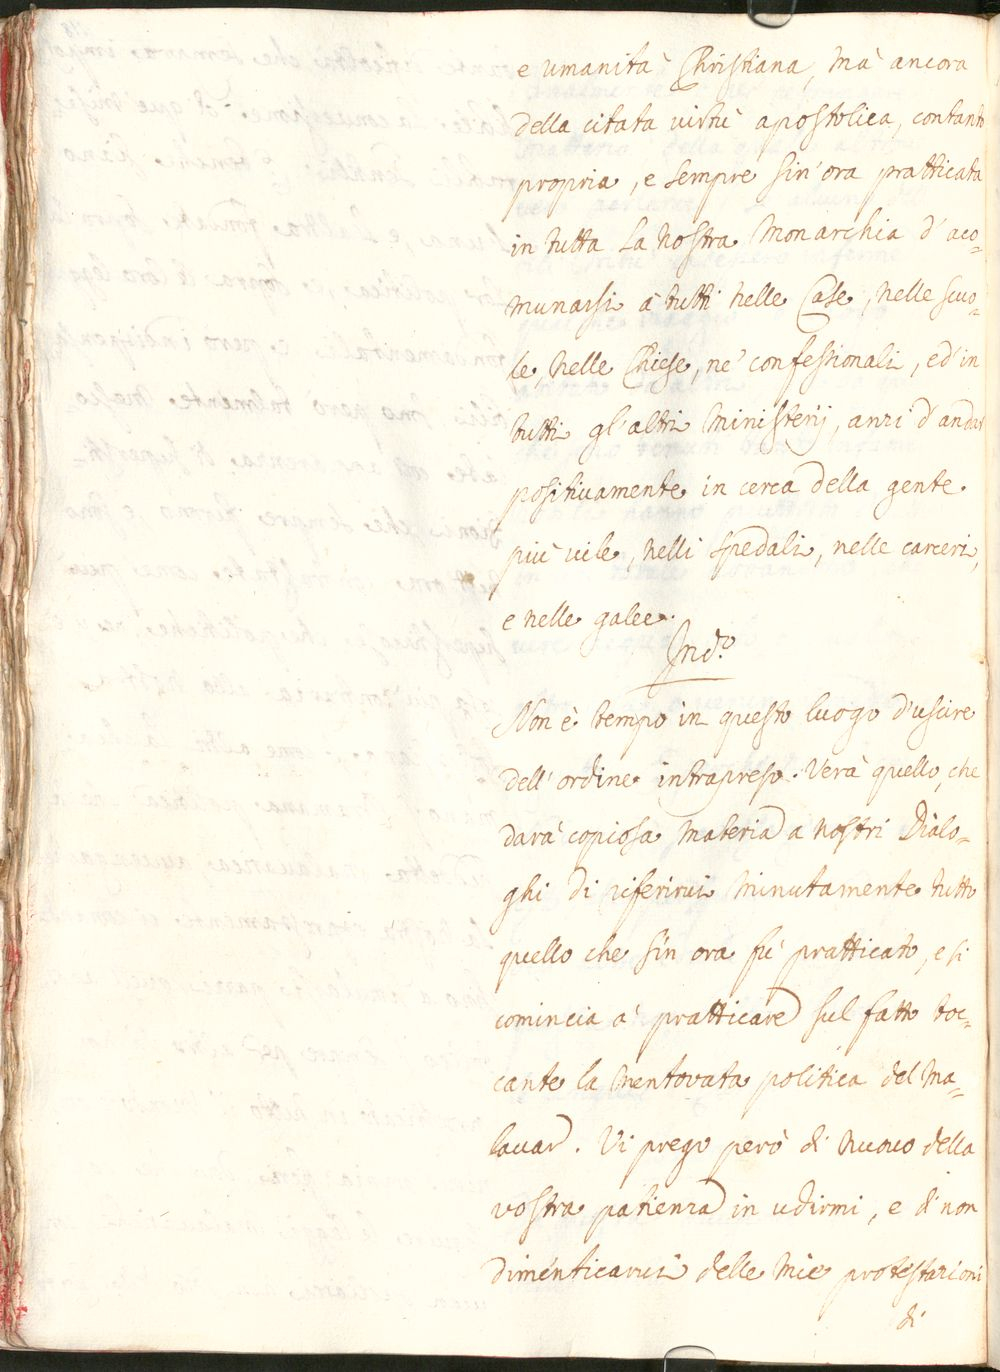 e umanità Christiana, mà ancora
della citata virtù apostolica, contanto
propria, e sempre sin'ora pratticata
in tutta la nostra Monarchia d'aco-
munarsi à tutti nelle Case, nelle scuo-
le, nelle Chiese, ne' confessionali, ed'in
tutti gl'altri Ministerij, anzi d'andar
positiuamente in cerca della gente
più uile, nelli spedali, nelle carceri,
e nelle galee.
Ind.º
Non è tempo in questo luogo d'uscire
dell'ordine intrapreso. Verà quello, che
darà copiosa materia a nostri Dialo-
ghi di riferirui minutamente tutto
quello che sin ora fù pratticato, e si
comincia à pratticare sul fatto toc-
cante la mentovata politica del Ma-
lauar. Vi prego però di nuouo della
vostra patienza in udirmi, e di non
dimenticarui delle mie protestazioni
di